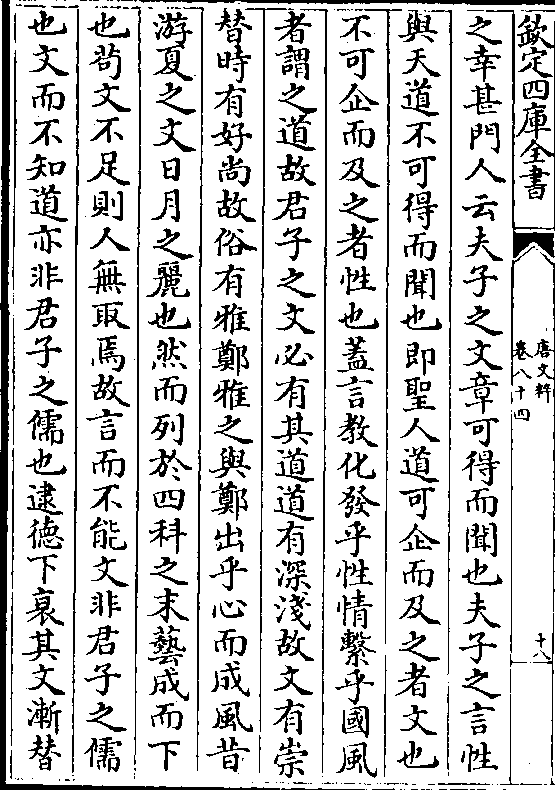 欽定四庫全書
唐文粹
卷八十四
十八
之幸甚門人云夫子之文章可得而聞也夫子之言性
與天道不可得而聞也即聖人道可企而及之者文也
不可企而及之者性也蓋言教化發乎性情繫乎國風
者謂之道故君子之文必有其道道有深淺故文有崇
替時有好尚故俗有雅鄭雅之與鄭出乎心而成風昔
游夏之文日月之麗也然而列於四科之末藝成而下
也茍文不足則人無取焉故言而不能文非君子之儒
也文而不知道亦非君子之儒也逮德下衰其文漸替